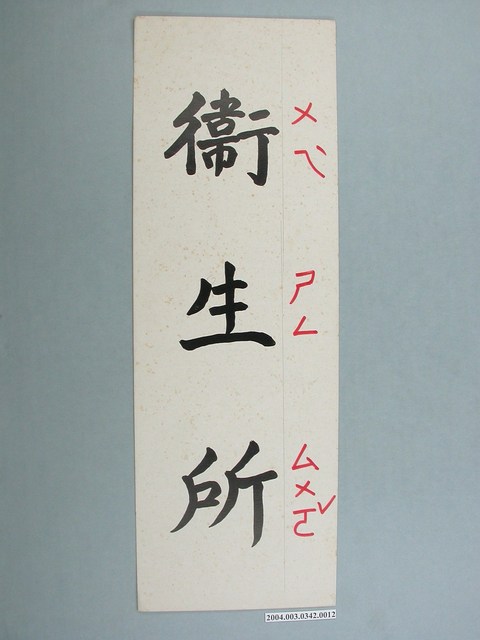 衛生所
ㄨㄟˋ
ㄕㄥ
ㄙㄨㄛˇ
2004.003.0342.0012